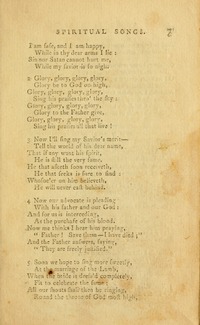 SPIRITUAL SONGS. 7
I am safe, and I am happy,
While in thy dear arms I lie:
Sin nor Satan cannot hurt me,
While my savior is so nigh.
2 Glory, glory, glory, glory,
Glory be to God on high,
Glory, glory, glory, glory,
Sing his praises thro' the sky:
Glory, glory, glory, glory,
Glory to the Father give,
Glory, glory, glory, glory,
Sing his praises all that live!
3 Now I'll sing my Savior's merit—
Tell the world of his dear name,
That if any want his spirit,
He is still the very same.
He that asketh soon receiveth,
He that seeks is sure to find:
Whosoe'er on him believeth,
He will never cast behind.
4 Now our advocate is pleading
With his father and our God:
And for us is interceding,
As the purchase of his blood.
Now me thinks I hear him praying,
" Father! save them—I have died;"
And the Father answers, saying,
" They are freely justified."
5 Soon we hope to sing more sweetly,
At the marriage of the Lamb,
When the bride is deck'd completely,
Fit to celebrate the fame:
All our hearts shall then be ringing,
Round the throne of God most high,